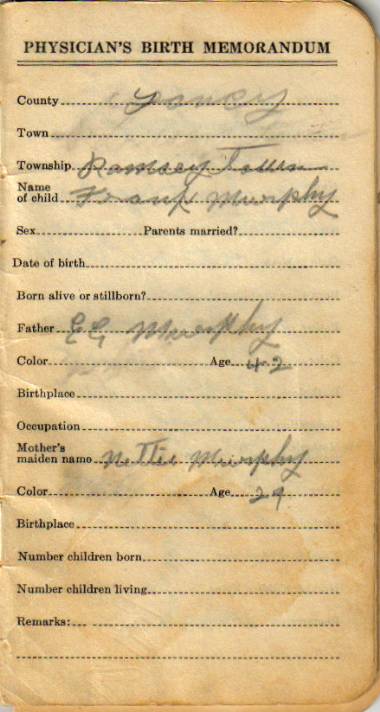 PHYSICIAN'S BIRTH MEMORANDUM
County Yancey
Town
Township Ramsey Town
Name of child Frank Murphy
Sex Parents married?
Date of birth
Born alive or stillborn?
Father EG Murphy
Color Age 42
Birthplace
Occupation
Mother's maiden name Nettie Murphy
Color Age 29
Birthplace
Number children born
Number children living
Remarks: